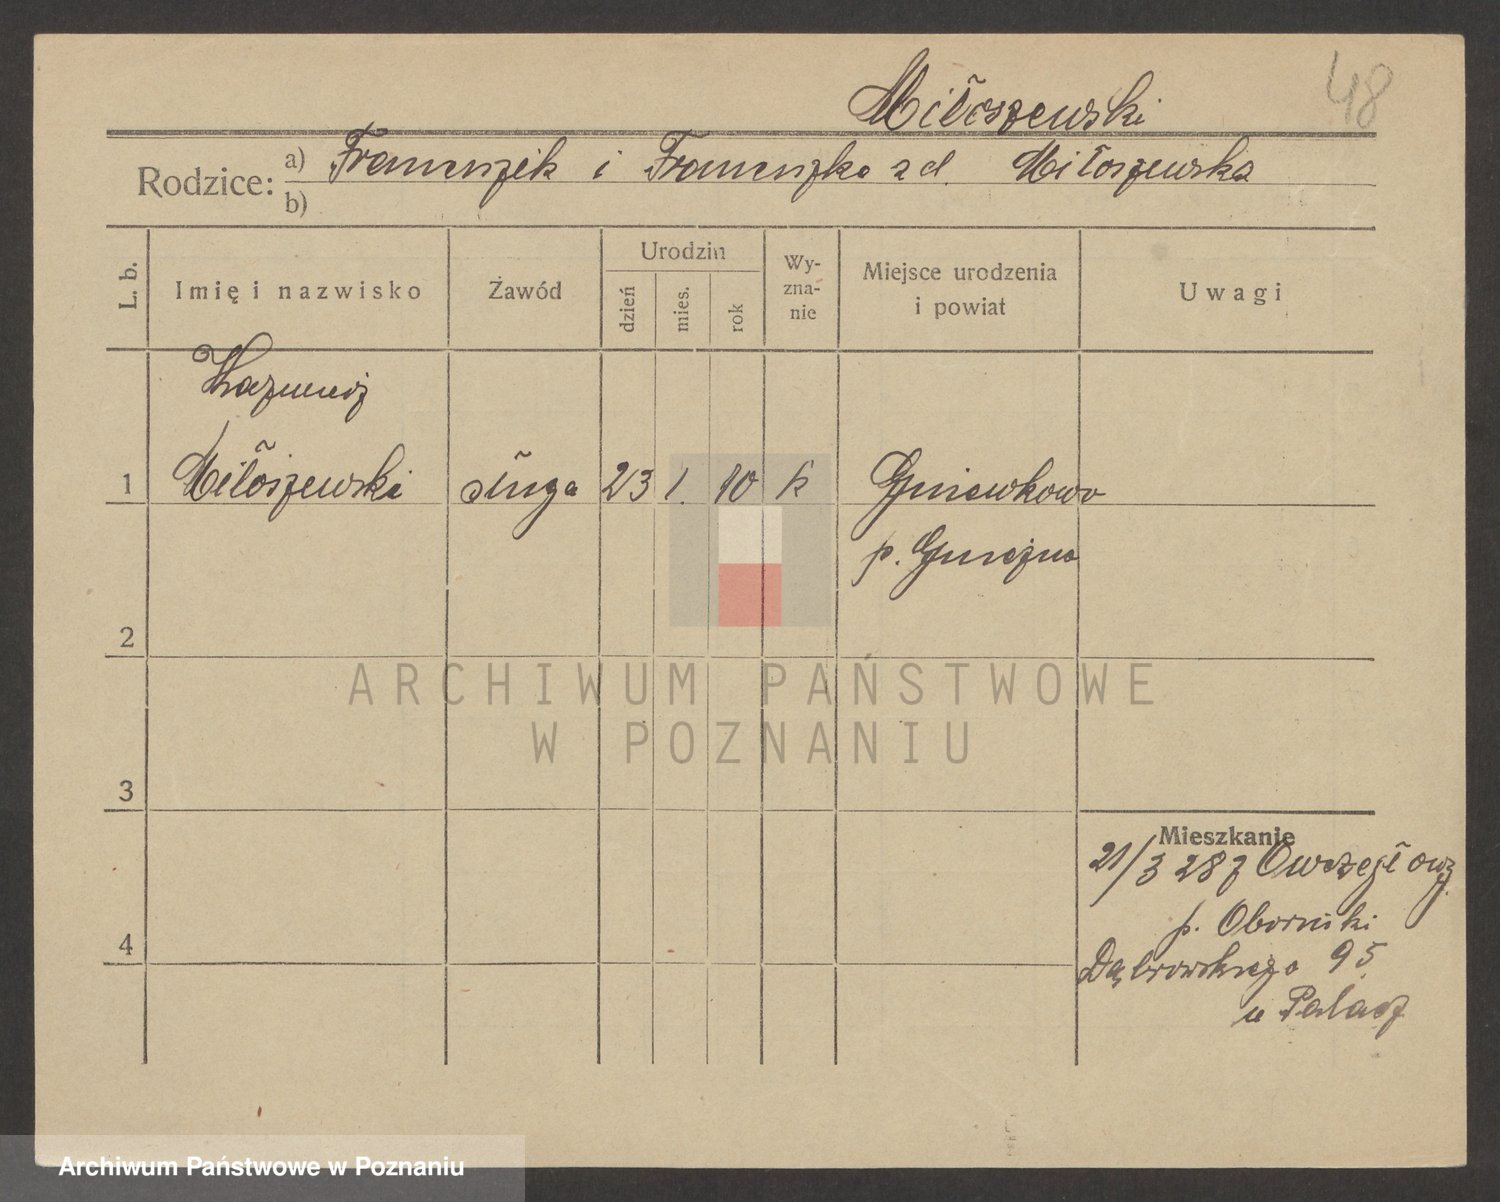 Miłoszewski
48
Rodzice:
a) Franciszek i Franciszka zd. Miłoszewska
b)
L. b.
Imię i nazwisko
Zawód
Urodzin
dzień
mies.
rok
Wy-
zna-
nie
Miejsce urodzenia
i powiat
Uwagi
Kazimierz
1 Miłoszewski sługa 23 1. 10 k Gniewkowo
p. Gniezno
2
3
4
Mieszkanie
21/3 28 z Owczegłowy
p. Oborniki
Dąbrowskiego 95
u Palacz
ARCHIWUM PAŃSTWOWE
W POZNANIU
Archiwum Państwowe w Poznaniu